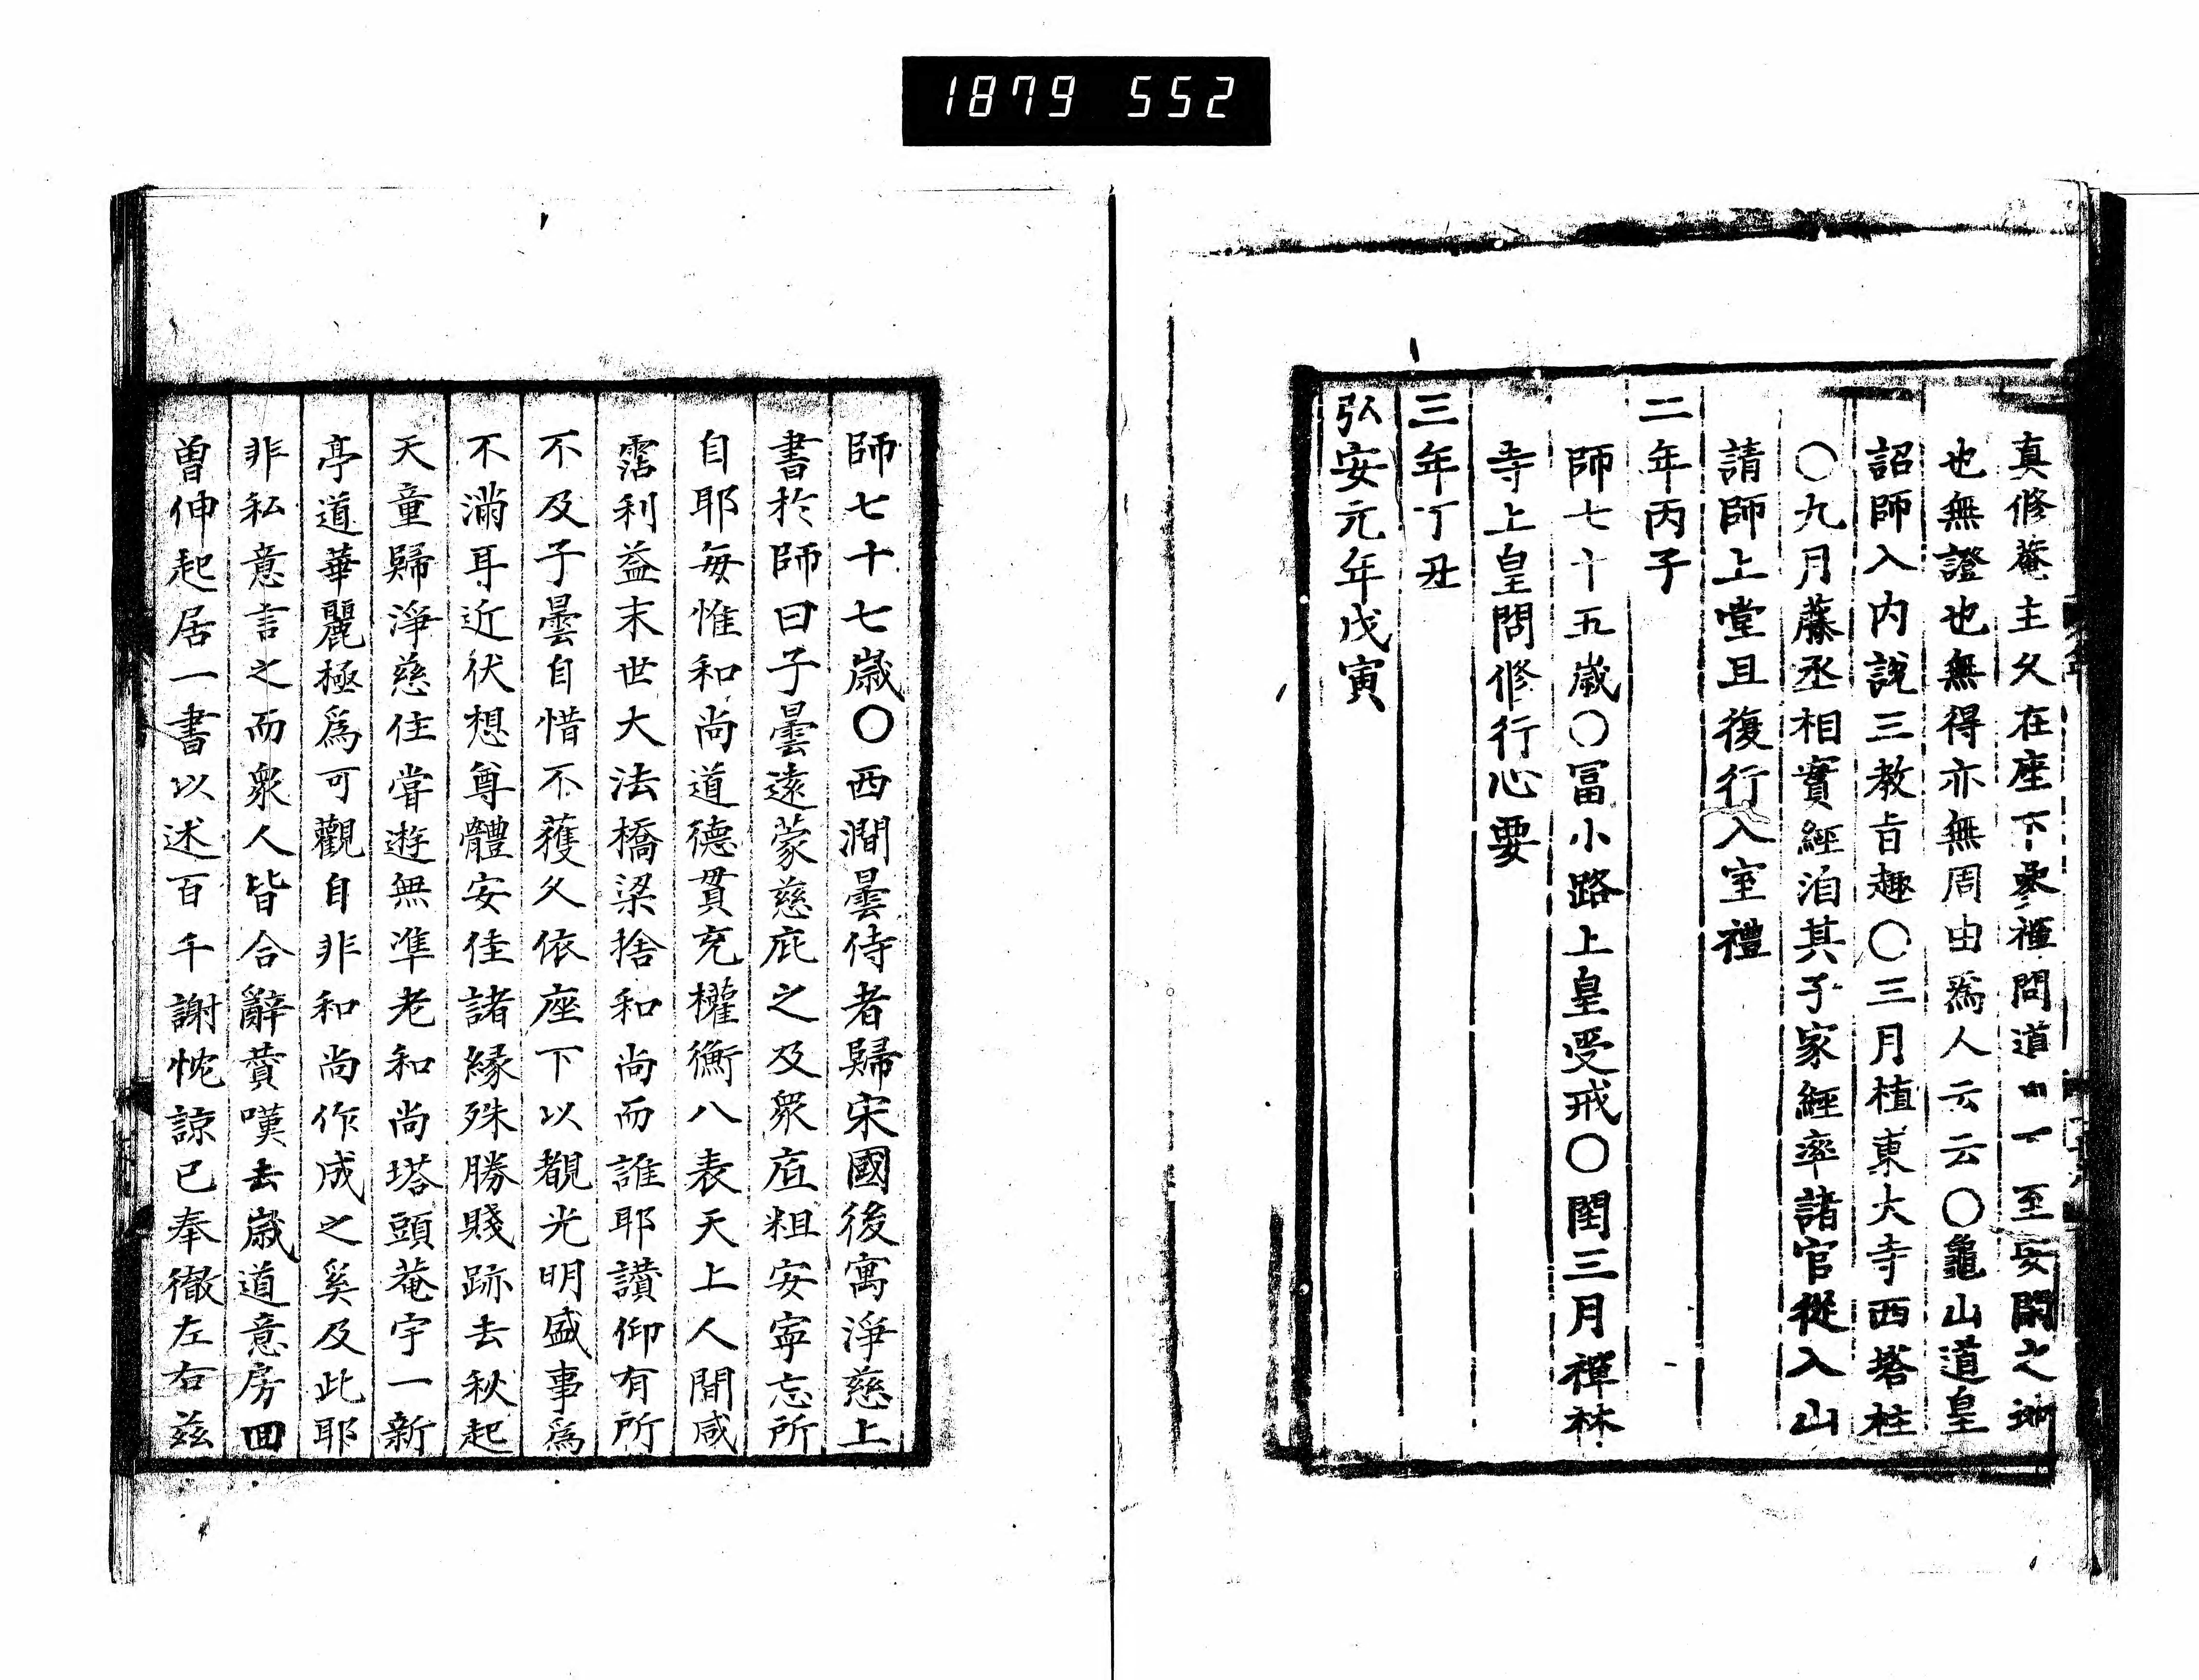 1879 552
真修菴主久在座下參禪問道一一至安閑之地
也無證也無得亦無周由爲人云云〇龜山道皇
詔師入内說三教旨趣〇三月植東大寺西塔柱
〇九月藤丞相實經洎其子家經率諸官從入山
請師上堂且復行入室禮
二年丙子
師七十五歲〇冨小路上皇受戒〇閏三月禪林
寺上皇問修行心要
三年丁丑
弘安元年戊寅
師七十七歲〇西澗曇侍者歸宋國後寓淨慈上
書於師曰子曇遠蒙慈庇之及衆庢粗安寜忘所
自耶每惟和尚道德貫充權衡八表天上人間咸
霑利益末世大法橋梁捨和尚而誰耶讃仰有所
不及子曇自惜不獲久依座下以覩光明盛事爲
不滿耳近伏想尊體安佳諸縁殊勝賤跡去秋起
天童歸淨慈住甞遊無準老和尚塔頭菴宇一新
亭道華麗極爲可觀自非和尚作成之奚及此耶
非私意言之而衆人皆合辭賛嘆去歲道意房回
曽伸起居一書以述百千謝忱諒已奉徹左右茲